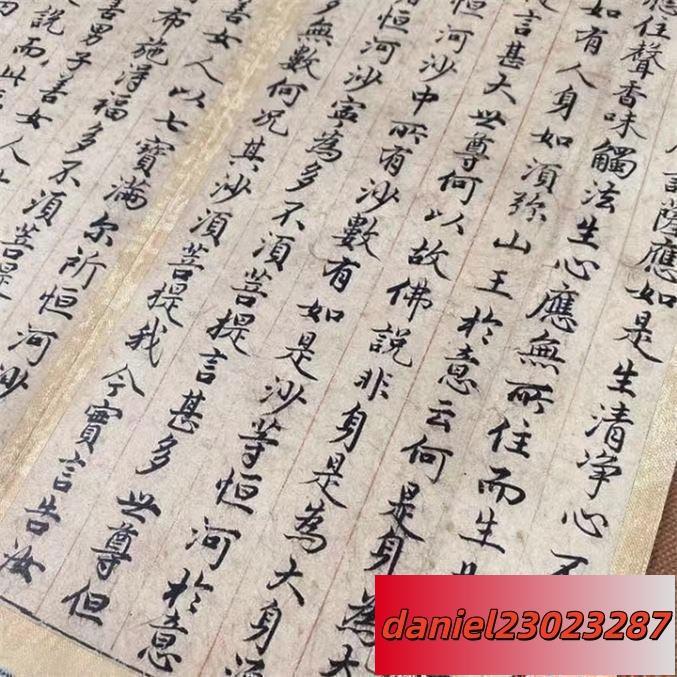 薩應如是生清淨心不
住聲香味觸法生心應無所住而生
如有人身如須弥山王於意云何是身為大
言甚大世尊何以故佛說非身是為大身須
恒河沙中所有沙數有如是沙等恒河於意
恒河沙寧為多不須菩提言甚多世尊但
多無數何況其沙須菩提我今實言告汝
善女人以七寶滿尔所恒河沙
布施得福多不須菩提
善男子善女人
說而此
daniel23023287